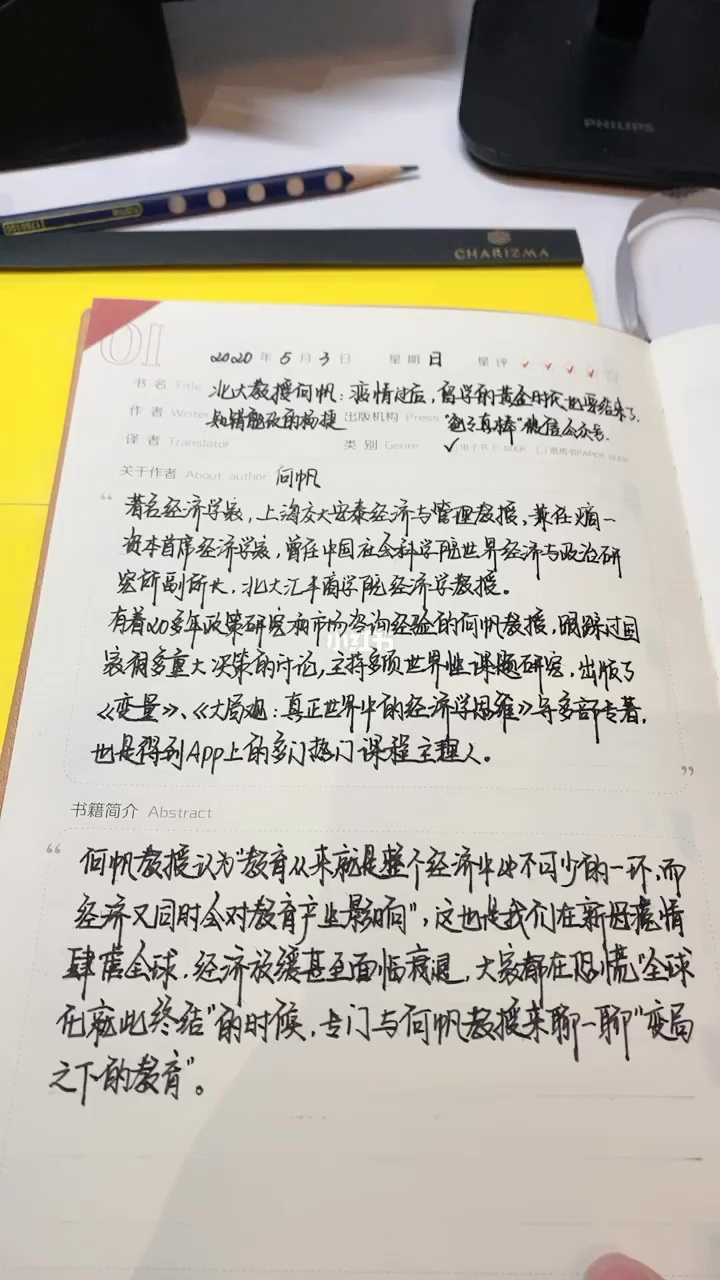 PHILIPS
CHARIZMA
01
2020 年 5 月 3 日 星期 日 星评 ✓ ✓ ✓ ✓
书名 Title 北大教授何帆：疫情过后，留学的黄金时代也要结束了.
作者 Writer 知错能改的杨捷 出版机构 Press "爸爸真棒"微信公众号.
译者 Translator 类别 Genre ✓ 电子书 E-BOOK 纸质书PAPER BOOK
关于作者 About author 何帆
“ 著名经济学家，上海交大安泰经济与管理教授，兼任熵一
资本首席经济学家，曾任中国社会科学院世界经济与政治研
究所副所长，北大汇丰商学院经济学教授。
有着20多年政策研究和市场咨询经验的何帆教授，跟踪过国
家很多重大决策的讨论，主持多项世界性课题研究，出版了
《变量》、《大局观：真正世界中的经济学思维》等多部专著，
也是得到App上的多门热门课程主理人。
”
小红书
书籍简介 Abstract
“ 何帆教授认为"教育从来就是整个经济中必不可少的一环，而
经济又同时会对教育产业影响"，这也是我们在新冠疫情
肆虐全球，经济放缓甚至面临衰退，大家都在恐慌"全球
化就此终结"的时候，专门与何帆教授来聊一聊"变局
之下的教育"。